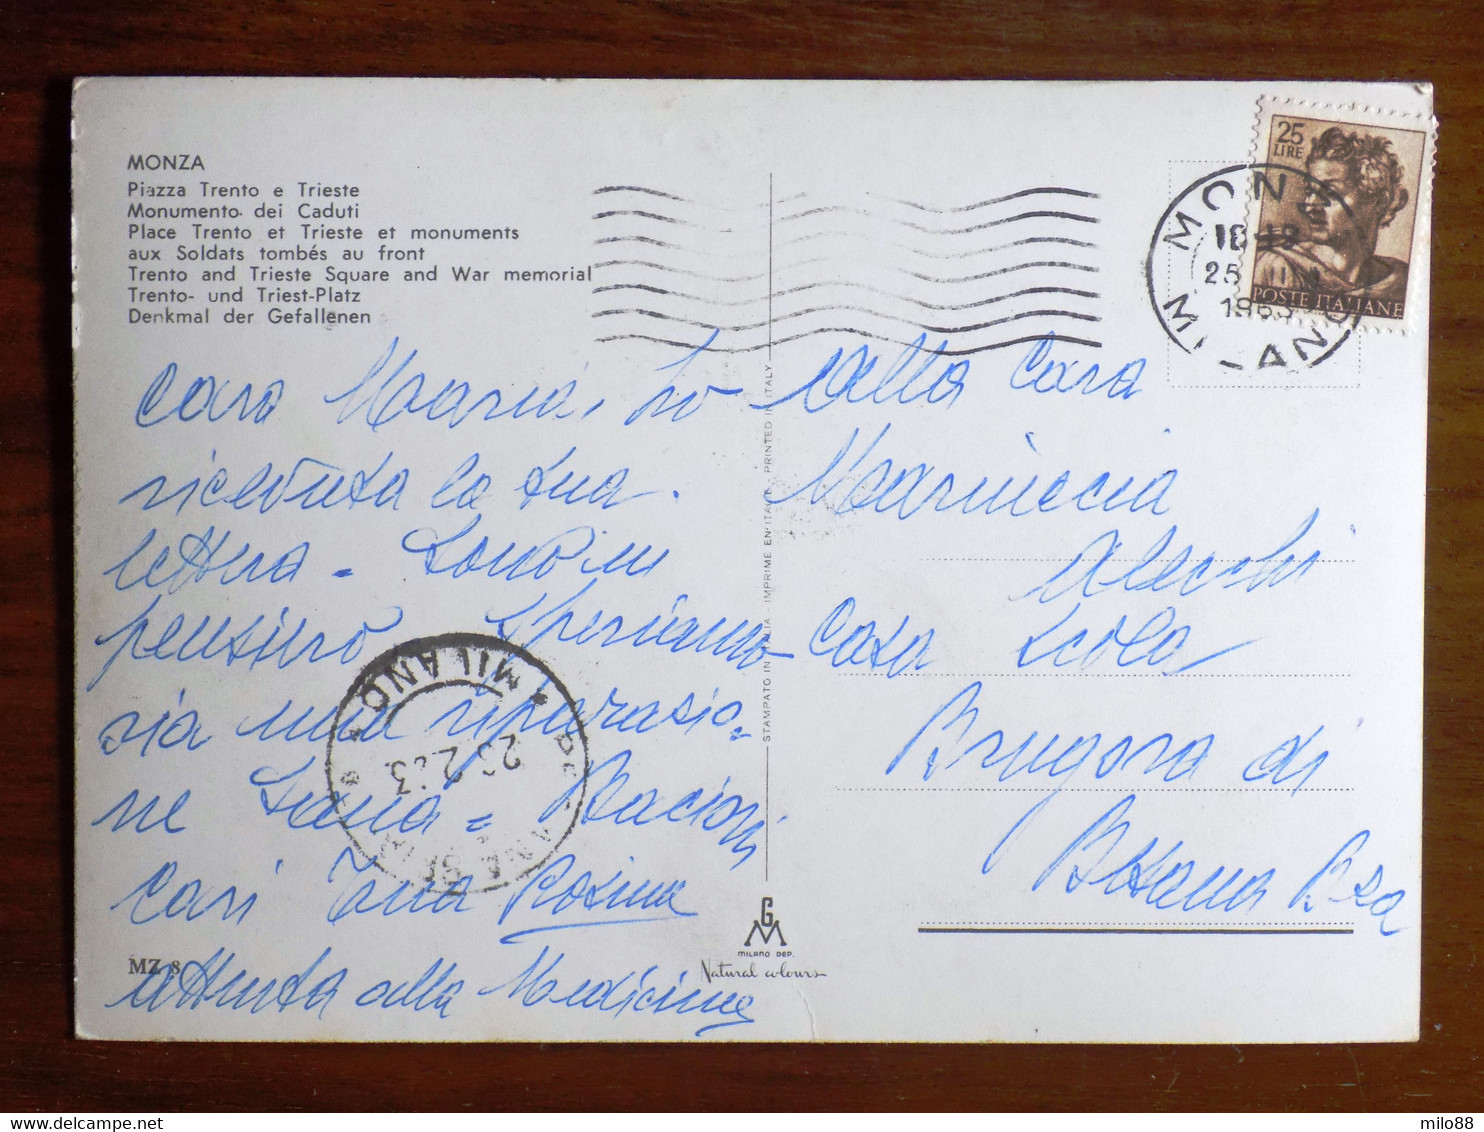 MONZA
Piazza Trento e Trieste
Monumento dei Caduti
Place Trento et Trieste et monuments
aux Soldats tombés au front
Trento and Trieste Square and War memorial
Trento- und Triest-Platz
Denkmal der Gefallenen
Cara Maria, ho
ricevuta la sua
lettera - Sono in
pensiero Speriamo
sia una riparazio=
ne sana = Bacioni
cari Rosina
attenta alla Medicine
MZ 8
STAMPATO IN ITALIA IMPRIME EN ITALIE PRINTED IN ITALY
GM
MILANO DEP.
Natural colours
25
LIRE
POSTE ITALIANE
MONZA
18-19
25
1963
MILANO
Alla Cara
Mariuccia
Casa Scola
di
MILANO
milo88